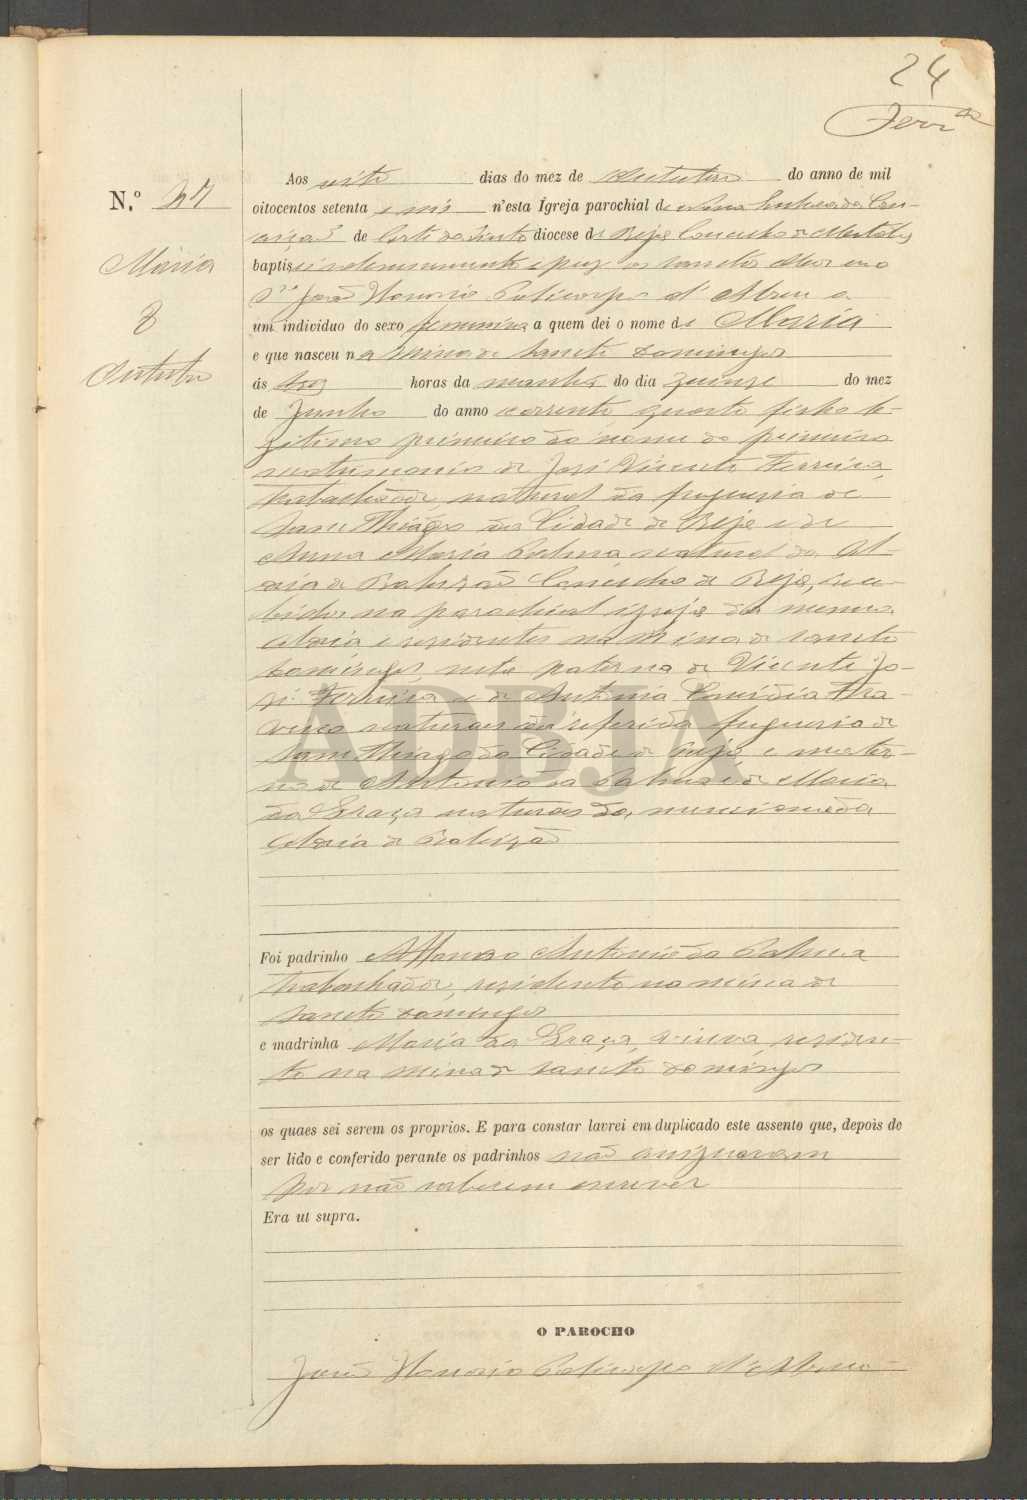 24
Ferr.ra
N.º 37
Maria
8
Outubro
Aos oito dias do mez de Outubro do anno de mil
oitocentos setenta e seis n'esta Igreja parochial de Nossa Senhora da Con-
ceição de Corte do Pinto diocese de Beja Concelho de Mertola
baptisei solemnemente e puz os sanctos oleos eu o
João Honorio Policarpo d'Abreu a
um individuo do sexo feminino a quem dei o nome de Maria
e que nasceu na Mina de Sancto Domingos
ás tres horas da manhã do dia quinze do mez
de Junho do anno corrente quarto filho le-
gitimo primeiro do nome do primeiro
matrimonio de José Vicente Ferreira,
trabalhador, natural da freguesia de
Sam Thiago da Cidade de Beja e de
Anna Maria Palma natural da Al-
daia de Baleizão Concelho de Beja, rece-
bidos na parochial igreja da mesma
Aldaia e residentes na Mina de Sancto
Domingos, neta paterna de Vicente Jo-
sé Ferreira e de Antonia
naturaes da referida freguesia de
Sam Thiago da Cidade de Beja e mater-
na de Antonio da Palma e de Maria
da Graça naturaes da mencionada
Aldaia de Baleizão
Foi padrinho Affonso Antonio da Palma
trabalhador, residente na mina de
Sancto Domingos
e madrinha Maria da Graça, viuva, residen-
te na Mina de Sancto Domingos
os quaes sei serem os proprios. E para constar lavrei em duplicado este assento que, depois de
ser lido e conferido perante os padrinhos não assignaram
por não saberem escrever
Era ut supra.
O PAROCHO
João Honorio Policarpo d'Abreu
ADBJA